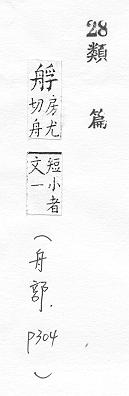 28類篇
艀房尤切舟短小者文一(舟部.P304)